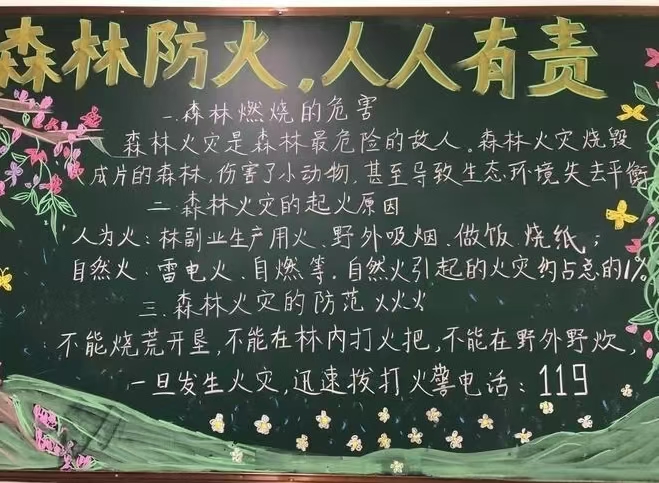 森林防火，人人有责
一.森林燃烧的危害
森林火灾是森林最危险的敌人。森林火灾烧毁
成片的森林，伤害了小动物，甚至导致生态环境失去平衡
二 森林火灾的起火原因
人为火：林副业生产用火、野外吸烟、做饭、烧纸；
自然火：雷电火、自燃等，自然火引起的火灾约占总的1%
三、森林火灾的防范
不能烧荒开垦，不能在林内打火把，不能在野外野炊，
一旦发生火灾，迅速拨打火警电话：119